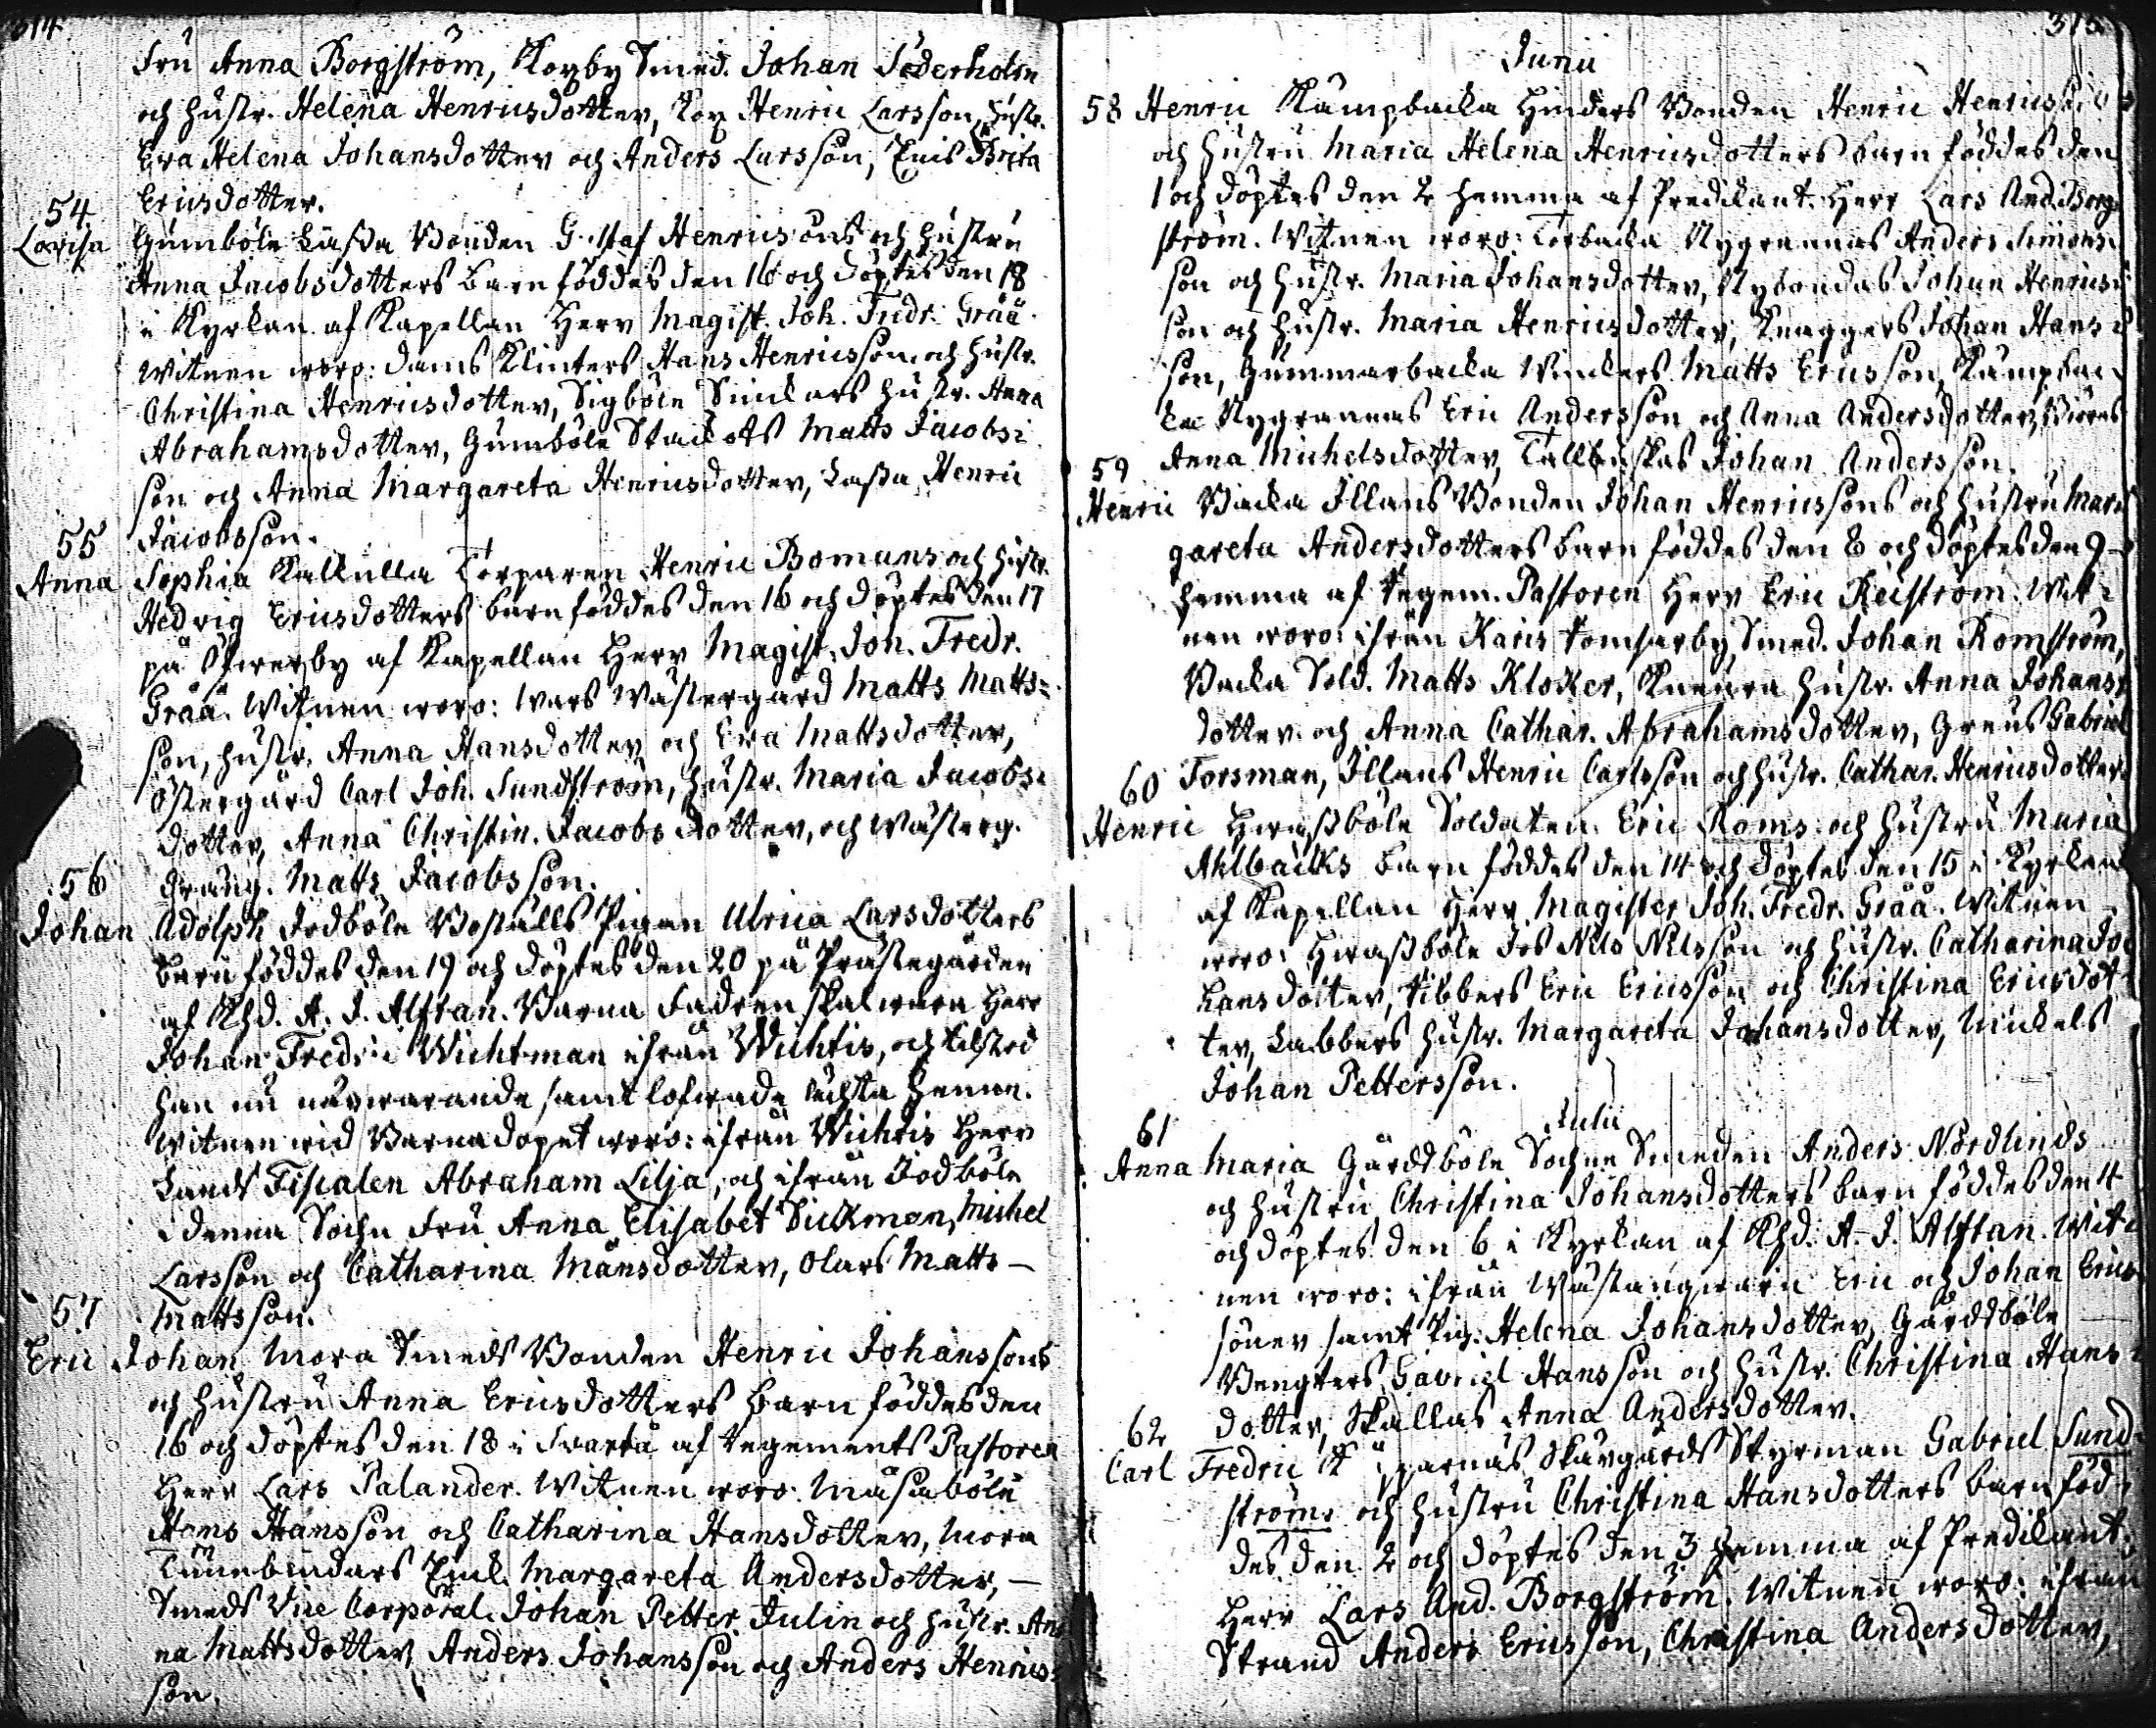 314
Fru Anna Borgström, Koxby Smed. Johan Söderholm
och hustr. Helena Henricsdotter, Kox Henric Larsson, hustr.
Eva Helena Johansdotter och Anders Larsson, Enis Brita
Ericsdotter.
54
Lovisa Gumböle Lassa Bonden Gustaf Henricsons och hustru
Anna Jacobsdotters barn föddes den 16 och döptes den 18
i Kyrkan af Kapellan Herr Magist. Joh. Fredr. Gråå.
Witnen woro: Dams Klinkers Hans Henricsson och hustr.
Christina Henricsdotter, Sigböle hustr. Anna
Abrahamsdotter, Gumböle Matts Jacobs-
son och Anna Margareta Henricsdotter, Lassa Henric
Jacobsson.
55
Anna Sophia Kallkulla Torparen Henric Bomans och hustr.
Hedvig Ericsdotters barn föddes den 16 och döptes den 17
på Öfwerby af Kapellan Herr Magist. Joh. Fredr.
Gråå. Witnen woro: Wars Wästergård Matts Matts-
son, hustr. Anna Hansdotter och Eva Mattsdotter,
Östergård Carl Joh. Sundström, hustr. Maria Jacobs-
dotter, Anna Christin. Jacobsdotter, och Wästerg.
dräng. Matts Jacobsson.
56
Johan Adolph Jodböle Boställs Pigan Ulrica Larsdotters
barn föddes den 19 och döptes den 20 på Prästegården
af Khd. A. J. Alftan. Barna Fadren skal wara Herr
Johan Fredric Wichtman ifrån Wichtis, och tilstod
han nu närwarande samt lofwade ächta henne.
Witnen wid Barnadopet woro: ifrån Wichtis Herr
Lands Fiscalen Abraham Lilja, och ifrån Jodböle
i denna Sochn Fru Anna Elisabet Sulkman, Michel
Larsson och Catharina Månsdotter, Olars Matts
Mattsson.
57
Eric Johan Mora Smeds Bonden Henric Johanssons
och hustru Anna Ericsdotters barn föddes den
16 och döptes den 18 i Svartå af Regements Pastoren
Herr Lars Palander. Witnen woro: Måsaböle
Hans Hansson och Catharina Hansdotter, Mora
Tunnbindars Enk. Margareta Andersdotter,
Smeds Vice Corporal. Johan Petter Julin och hustr. An-
na Mattsdotter, Anders Johansson och Anders Henrics-
son.
315
Junii
58 Henric Kämpbacka Hinders Bonden Henric Henricss.
och hustru Maria Helena Henricsdotters barn föddes den
1 och döptes den 2 hemma af Predikant. Herr Lars And. Borg-
ström. Witnen woro: Torbacka Nygrannas Anders Simons-
son och hustr. Maria Johansdotter, Nybondas Johan Henrics-
son och hustr. Maria Henricsdotter, Knaggers Johan Hans-
son, Gummarbacka Winkers Matts Ericsson, Kämpbac-
ka Nygrannas Eric Andersson och Anna Andersdotter, Biörns
Anna Michelsdotter, Tallbuskas Johan Andersson.
59
Henric Backa Illans Bonden Johan Henricssons och hustru Mar-
gareta Andersdotters barn föddes den 8 och döptes den 9
hemma af Regem. Pastoren Herr Eric Reiström. Wit-
nen woro: ifrån Karis Romsarby Smed. Johan Romström,
Backa Sold. Matts Klocker, hustr. Anna Johans-
dotter och Anna Cathar. Abrahamsdotter, Greus Gabriel
Forsman, Illans Henric Carlsson och hustr. Cathar. Henricsdotter.
60
Henric Hwassböle Soldaten Eric Roms och hustru Maria
Ahlbäcks barn föddes den 14 och döptes den 15 i Kyrkan
af Kapellan Herr Magister Joh. Fredr. Gråå. Witnen
woro: Hwassböle Jos Nils Nilsson och hustr. Catharina Jo-
hansdotter, Ribbers Eric Ericsson och Christina Ericsdot-
ter, Labbers hustr. Margareta Johansdotter, Mickels
Johan Pettersson.
Julii
61
Anna Maria Gårdsböle Sochne Smeden Anders Nordlinds
och hustru Christina Johansdotters barn föddes den 4
och döptes den 6 i Kyrkan af Khd. A. J. Alftan. Wit-
nen woro: ifrån Wästanqwarn Eric och Johan Erics-
söner samt Pig. Helena Johansdotter, Gårdsböle
Bengters Gabriel Hansson och hustr. Christina Hans-
dotter, Skallas Anna Andersdotter.
62
Carl Fredric Skärgårds Styrman Gabriel Sund-
ströms och hustru Christina Hansdotters barn föd-
des den 2 och döptes den 3 hemma af Predikant.
Herr Lars And. Borgström. Witnen woro: ifrån
Strand Anders Ericsson, Christina Andersdotter,